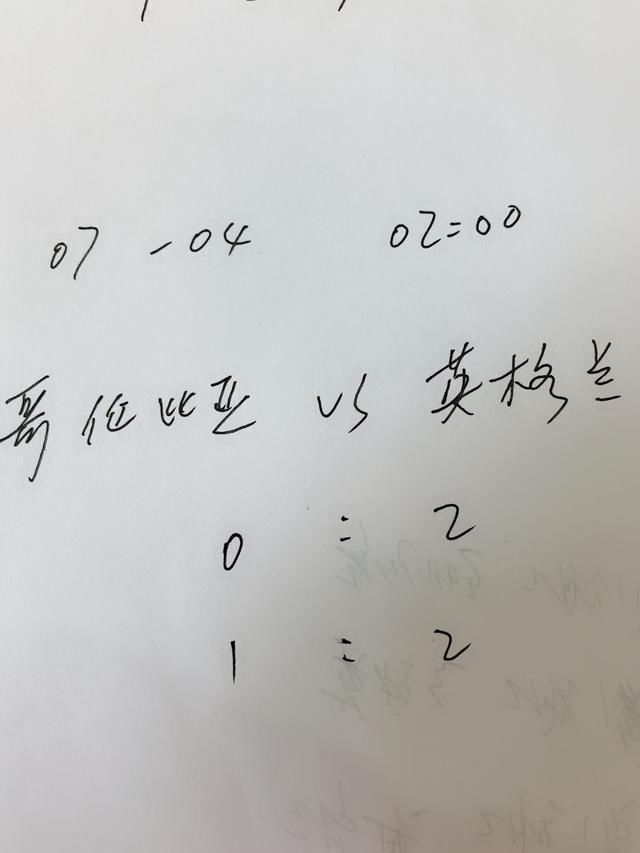 07 - 04 02:00
哥伦比亚 VS 英格兰
0 : 2
1 : 2